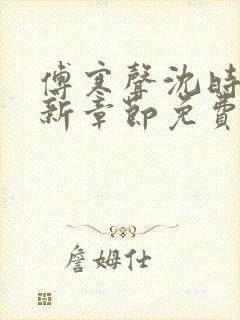 傅寒聲沈時
新章節免費
詹姆仕